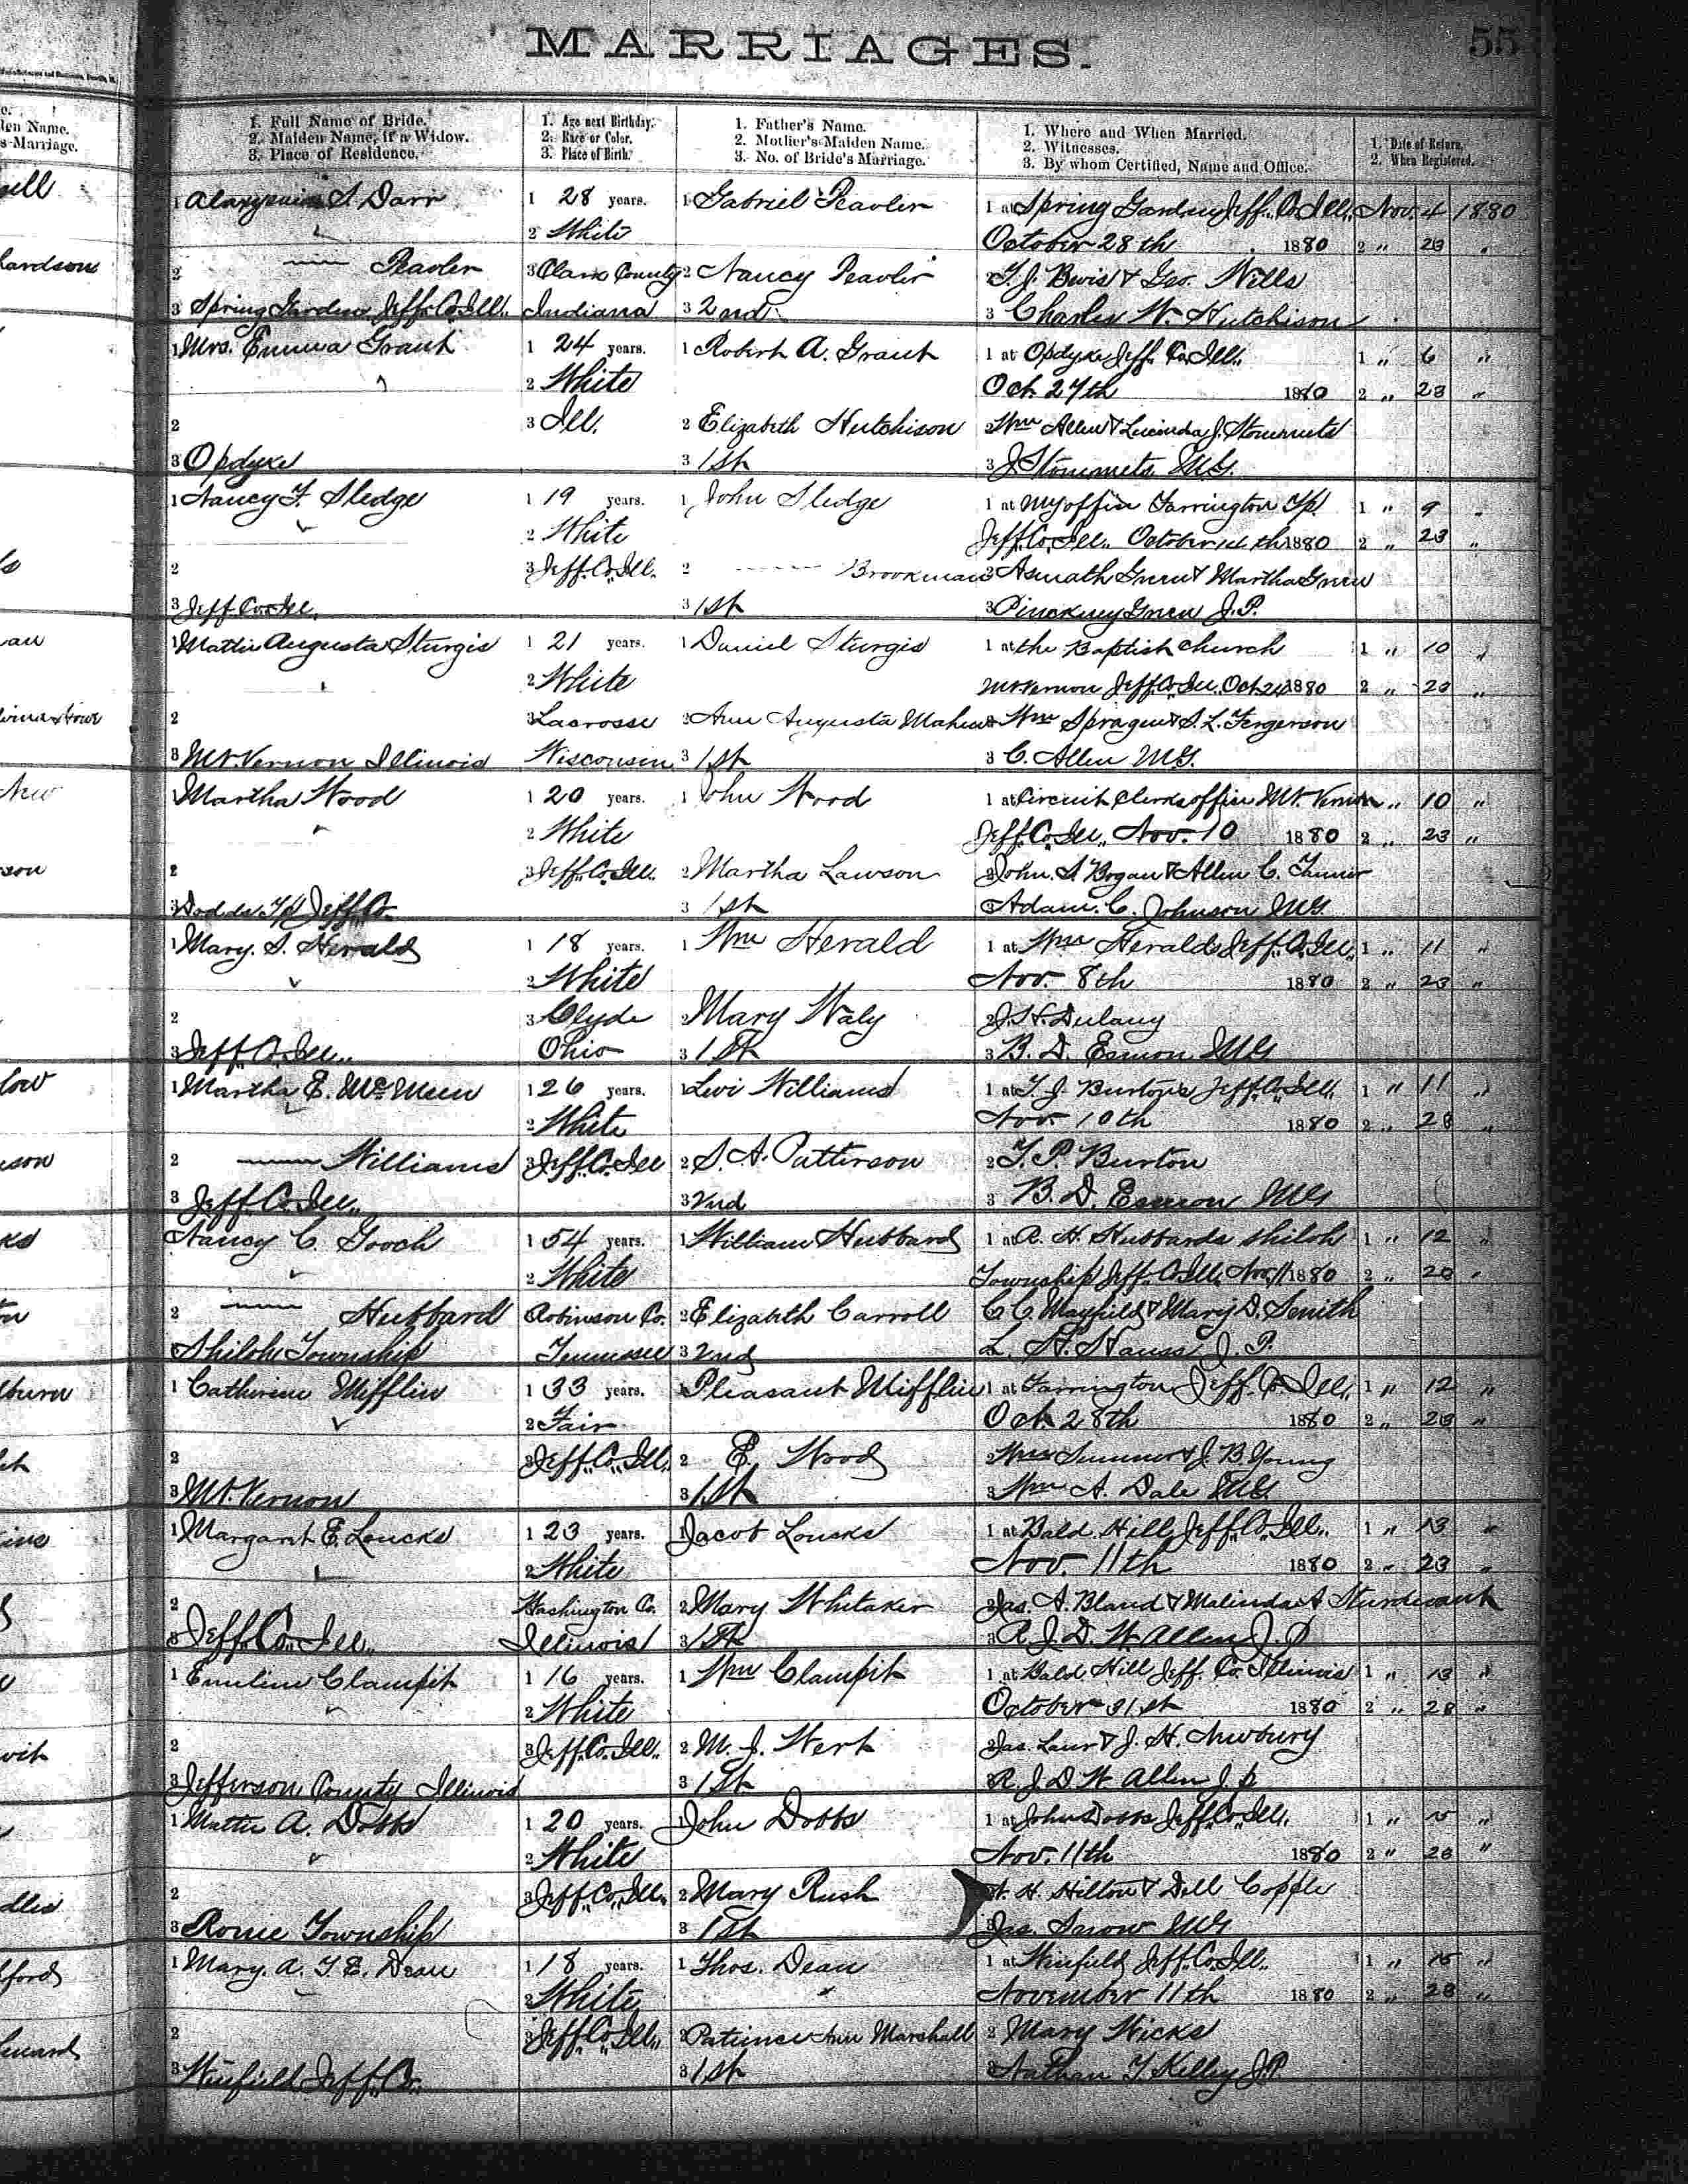 MARRIAGES.
55
1. Full Name of Bride.
2. Maiden Name, if a Widow.
3. Place of Residence.
1. Age next Birthday.
2. Race or Color.
3. Place of Birth.
1. Father's Name.
2. Mother's Maiden Name.
3. No. of Bride's Marriage.
1. Where and When Married.
2. Witnesses.
3. By whom Certified, Name and Office.
1. Date of Return.
2. When Registered.
len Name.
s Marriage.
1 S. Darr 1 28 years. 1 Gabriel Peavler 1 at Spring Garden Jeff. Co. Ill. Nov. 4 1880
2 White October 28th 1880 2 " 23 "
2 Peavler 3 Clark County 2 Nancy Peavler 2 T. J. & Geo. Wells
3 Spring Garden Jeff. Co. Ill. Indiana 3 2nd 3 Charles W. Hutchison
1 Mrs. Emma Grant 1 24 years. 1 Robert A. Grant 1 at Opdyke Jeff. Co. Ill. 1 " 6 "
2 White Oct. 27th 1880 2 " 23 "
2 3 Ill. 2 Elizabeth Hutchison 2 Wm Allen & Lucinda J.
3 Opdyke 3 1st 3 J. M.G.
1 Nancy F. Sledge 1 19 years. 1 John Sledge 1 at My office Farrington Tp. 1 " 9 "
2 White Jeff. Co. Ill. October 1880 2 " 23 "
2 3 Jeff. Co. Ill. 2 Brookman 2 Green & Martha Green
3 Jeff. Co. Ill. 3 1st 3 Pinckney Green J.P.
1 Mattie Augusta Sturgis 1 21 years. 1 Daniel Sturgis 1 at the Baptist Church 1 " 10 "
2 White Mt Vernon Jeff. Co. Ill. Oct 1880 2 " 23 "
2 3 Lacrosse 2 Ann Augusta 2 Wm Sprague & S. L. Fergerson
3 Mt. Vernon Illinois Wisconsin 3 1st 3 C. Allen M.G.
1 Martha Wood 1 20 years. 1 John Wood 1 at Circuit Clerks office Mt. Vernon " 10 "
2 White Jeff. Co. Ill. Nov. 10 1880 2 " 23 "
2 3 Jeff. Co. Ill. 2 Martha Lawson 2 John S. Bogan & Allen C. Tanner
3 Dodds Tp Jeff. Co. 3 1st 3 Adam C. Johnson M.G.
1 Mary. S. Herald 1 18 years. 1 Wm Herald 1 at Wm Heralds Jeff. Co. Ill. 1 " 11 "
2 White Nov. 8th 1880 2 " 23 "
2 3 Clyde 2 Mary Waly 2 J. H. Dulany
3 Jeff. Co. Ill. Ohio 3 1st 3 B. D. Esmon M.G.
1 Martha E. McMeen 1 26 years. 1 Levi Williams 1 at T. J. Burton's Jeff. Co. Ill. 1 " 11 "
2 White Nov. 10th 1880 2 " 23 "
2 Williams 3 Jeff. Co. Ill 2 S. A. Patterson 2 T. P. Burton
3 Jeff. Co. Ill. 3 2nd 3 B. D. Esmon M.G.
Nancy C. Gooch 1 54 years. 1 William Hubbard 1 at R. H. Hubbards Shiloh 1 " 12 "
2 White Township Jeff. Co. Ill. Nov. 11 1880 2 " 23 "
2 Hubbard Robinson Co. 2 Elizabeth Carroll C. C. Mayfield & Mary D. Smith
Shiloh Township Tennessee 3 2nd L. H. J. P.
1 Catherine Mifflin 1 33 years. 1 Pleasant Mifflin 1 at Farrington Jeff. Co. Ill. 1 " 12 "
2 Fair Oct. 28th 1880 2 " 23 "
2 3 Jeff. Co. Ill. 2 E. Wood 2 Wm Summers & J. B. Young
3 Mt. Vernon 3 1st 3 Wm A. Dale M.G.
1 Margaret E. Loucks 1 23 years. 1 Jacob Loucks 1 at Bald Hill Jeff. Co. Ill. 1 " 13 "
2 White Nov. 11th 1880 2 " 23 "
2 Washington Co. 2 Mary Whitaker 2 Jas. A. Bland & Malinda A Sturdivant
3 Jeff. Co. Ill. Illinois 3 1st 3 R. J. D. W. Allen J. P
1 Emeline Clampit 1 16 years. 1 Wm Clampit 1 at Bald Hill Jeff. Co. Illinois 1 " 13 "
2 White October 31st 1880 2 " 23 "
2 3 Jeff. Co. Ill. 2 M. J. Werk 2 Jas. & J. H. Newbury
3 Jefferson County Illinois 3 1st 3 R. J. D. W Allen J. P.
1 Mattie A. Dobbs 1 20 years. 1 John Dobbs 1 at John Dobbs Jeff. Co. Ill. 1 " "
2 White Nov. 11th 1880 2 " 23 "
2 3 Jeff. Co. Ill. 2 Mary Rush H. Hilton & Dell Copple
3 Rome Township 3 1st 3 Jas. Snow M.G
1 Mary. A. T. E. Dean 1 18 years. 1 Thos. Dean 1 at Winfield Jeff. Co. Ill. 1 " 15 "
2 White November 11th 1880 2 " 23 "
2 3 Jeff. Co. Ill. 2 Patience Ann Marshall 2 Mary Hicks
3 Winfield Jeff. Co. 3 1st 3 Nathan T. Kelley J.P.